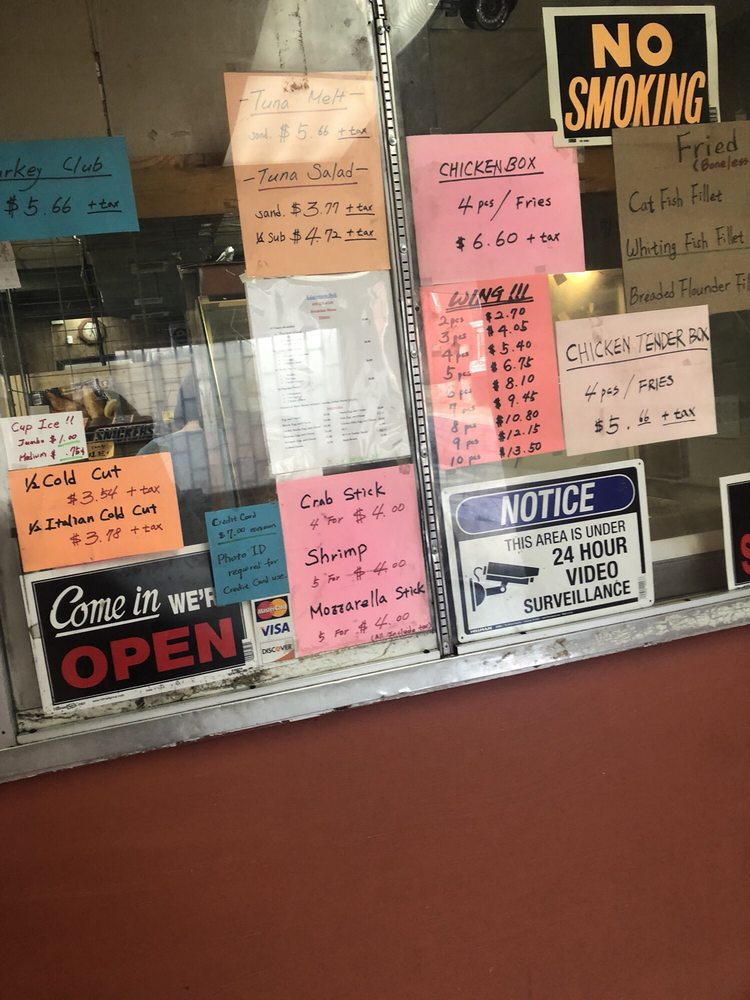 NO
SMOKING
-Tuna Melt-
sand. $5.66 + tax
-Tuna Salad-
sand. $3.77 + tax
½ Sub $4.72 + tax
rkey Club
$5.66 + tax
CHICKEN BOX
4 pcs / Fries
$6.60 + tax
Fried
(Boneless
Cat Fish Fillet
Whiting Fish Fillet
Breaded Flounder Fil
WING !!!
2 pcs $2.70
3 pcs $4.05
4 pcs $5.40
5 pcs $6.75
6 $8.10
7 pcs $9.45
8 pcs $10.80
9 pcs $12.15
10 pcs $13.50
CHICKEN TENDER BOX
4 pcs / FRIES
$5.66 + tax
Cup Ice !!
Jumbo $1.00
Medium $.75¢
SNICKERS
½ Cold Cut
$3.54 + tax
½ Italian Cold Cut
$3.78 + tax
Credit Card
$7.00
Photo ID
required for
Credit Card use
Crab Stick
4 For $4.00
Shrimp
5 For $4.00
Mozzarella Stick
5 For $4.00
(All Include tax)
Come in WE'R
OPEN
MasterCard
VISA
DISCOVER
NOTICE
THIS AREA IS UNDER
24 HOUR
VIDEO
SURVEILLANCE
S